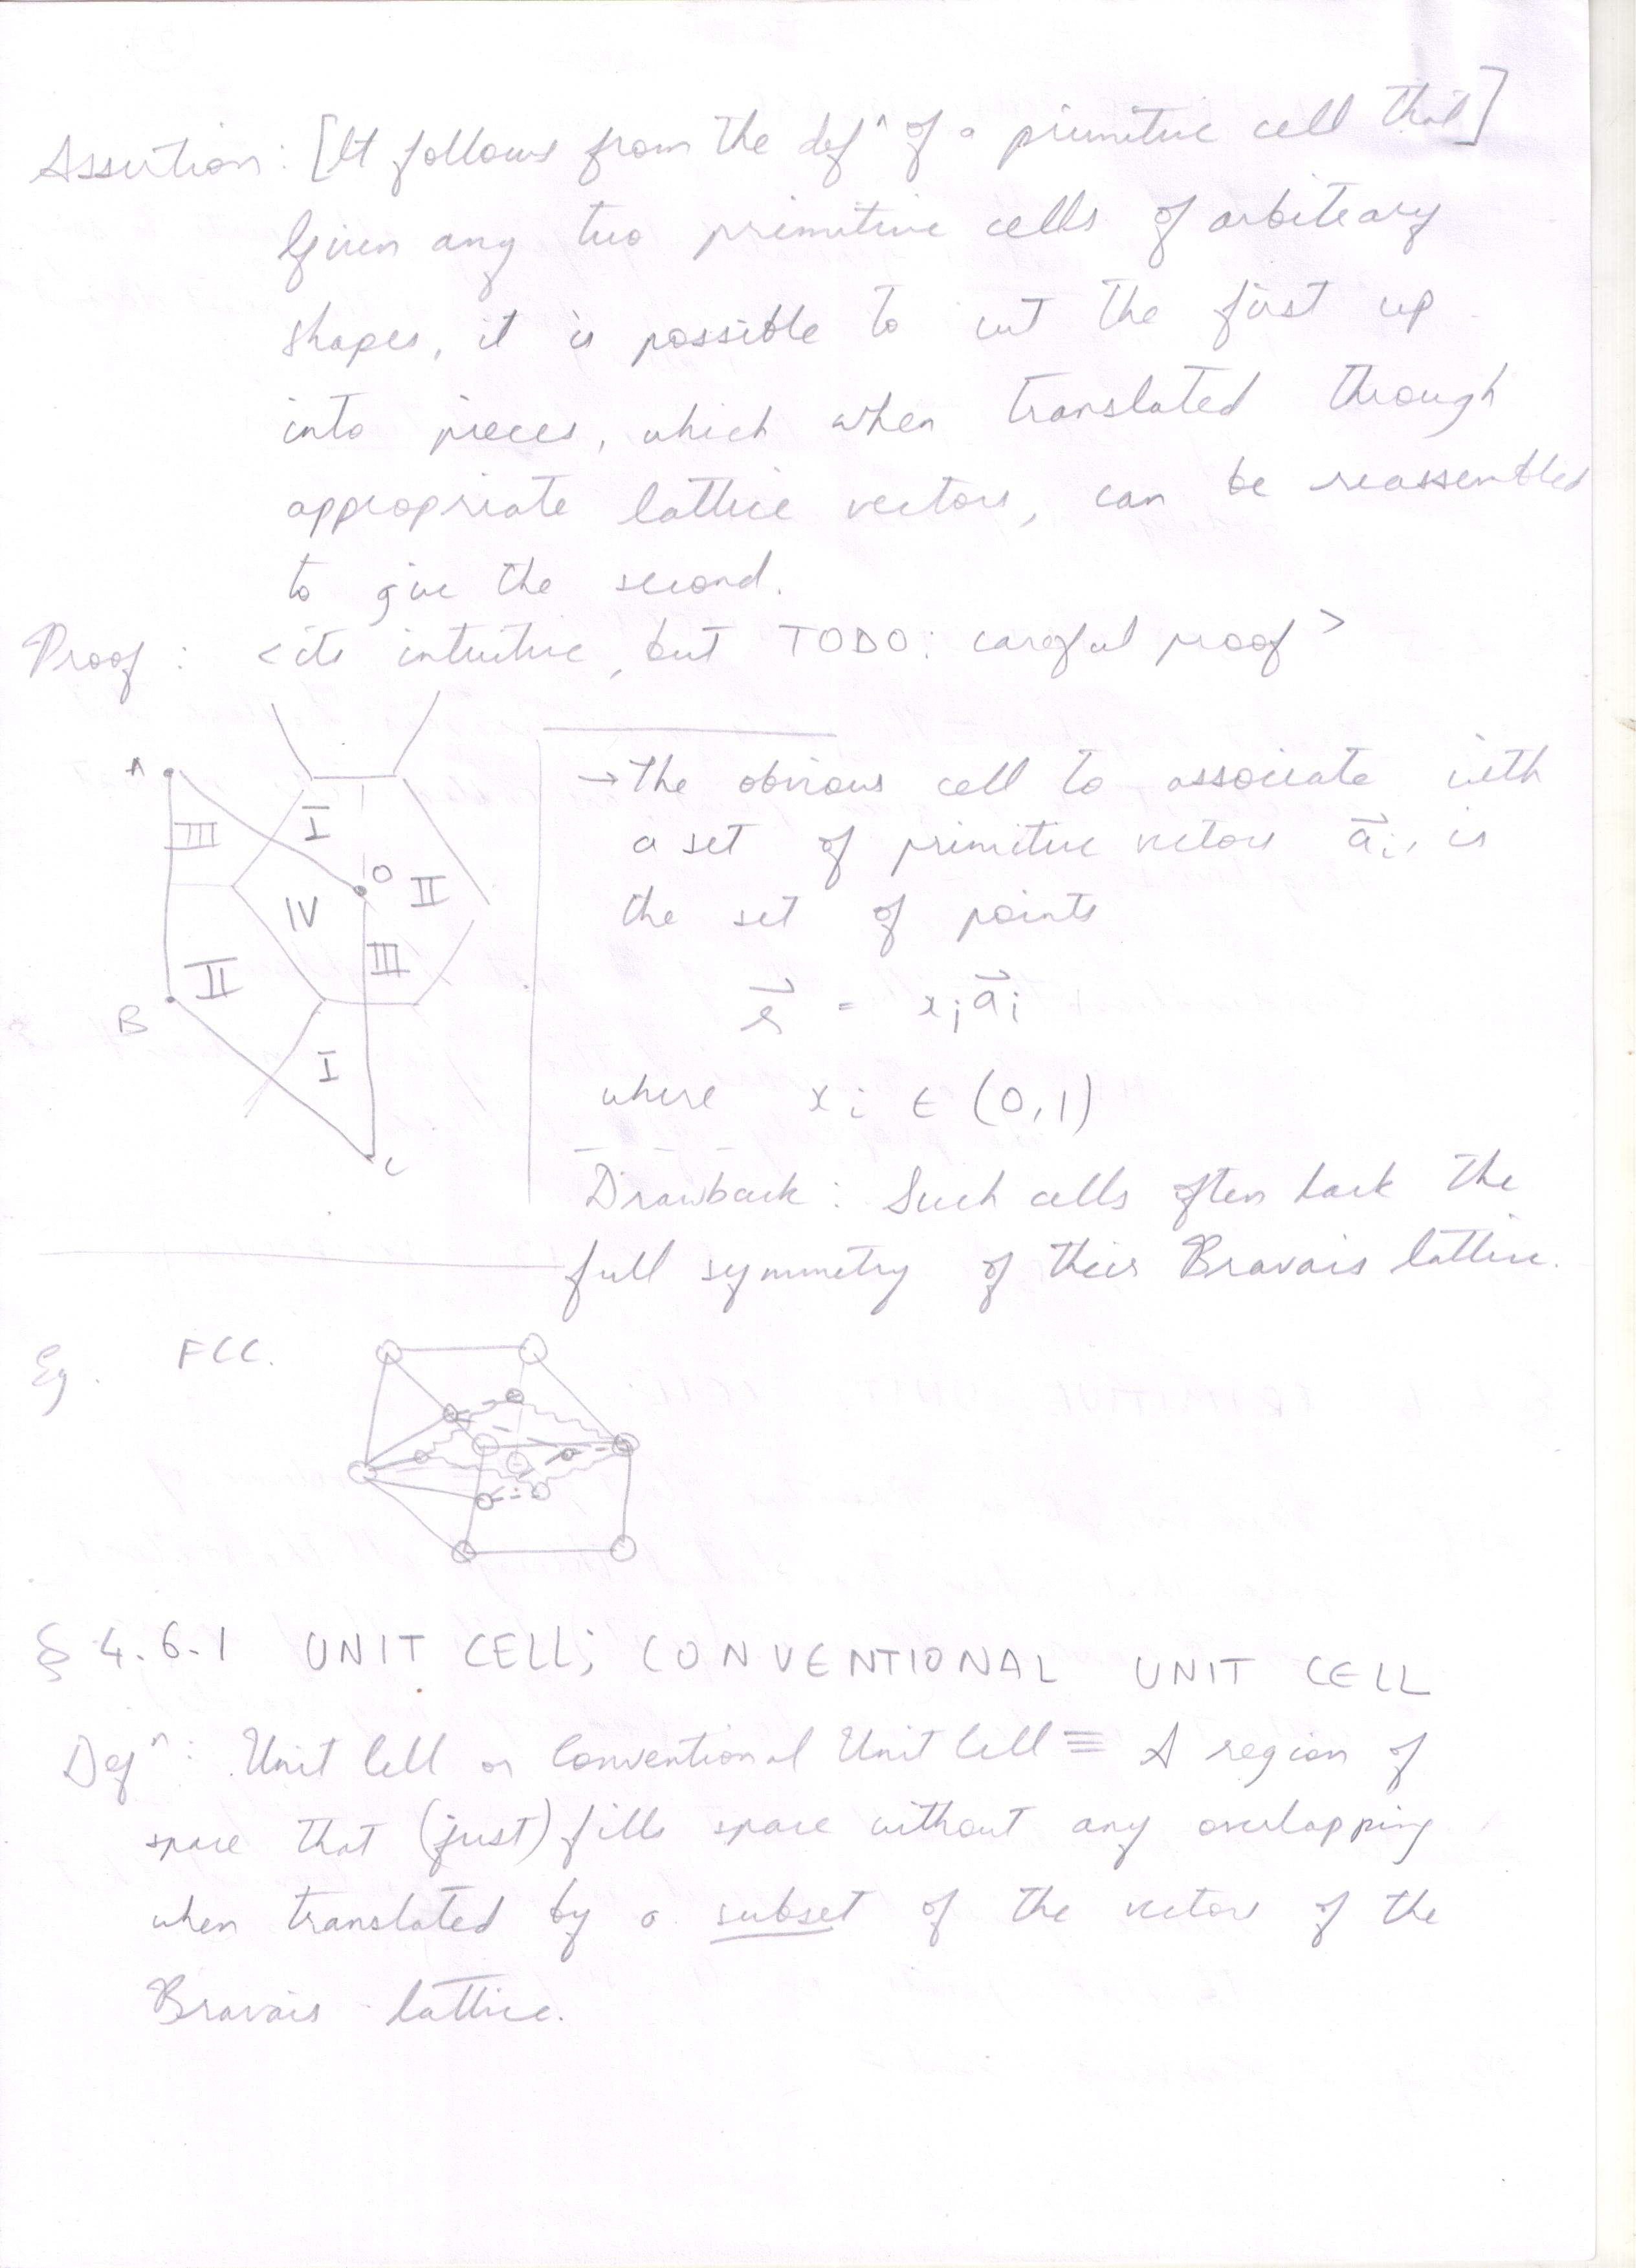 Assertion : [It follows from the defⁿ of a primitive cell that]
Given any two primitive cells of arbiteary
shapes, it is possible to cut the first up
into pieces, which when translated through
appropriate lattice vectors, can be reassembled
to give the second.
Proof : <its intuitive, but TODO: careful proof>
A
I
III
O
II
IV
III
II
B
I
C
→ The obvious cell to associate with
a set of primitive vectors a⃗ᵢ, is
the set of points
r⃗ = xᵢa⃗ᵢ
where xᵢ ∈ (0,1)
Drawback : Such cells often lack the
full symmetry of their Bravais lattice.
Eg. FCC.
§ 4.6.1 UNIT CELL; CONVENTIONAL UNIT CELL
Defⁿ: Unit Cell or Conventional Unit Cell ≡ A region of
space that (just) fills space without any overlapping
when translated by a subset of the vectors of the
Bravais lattice.